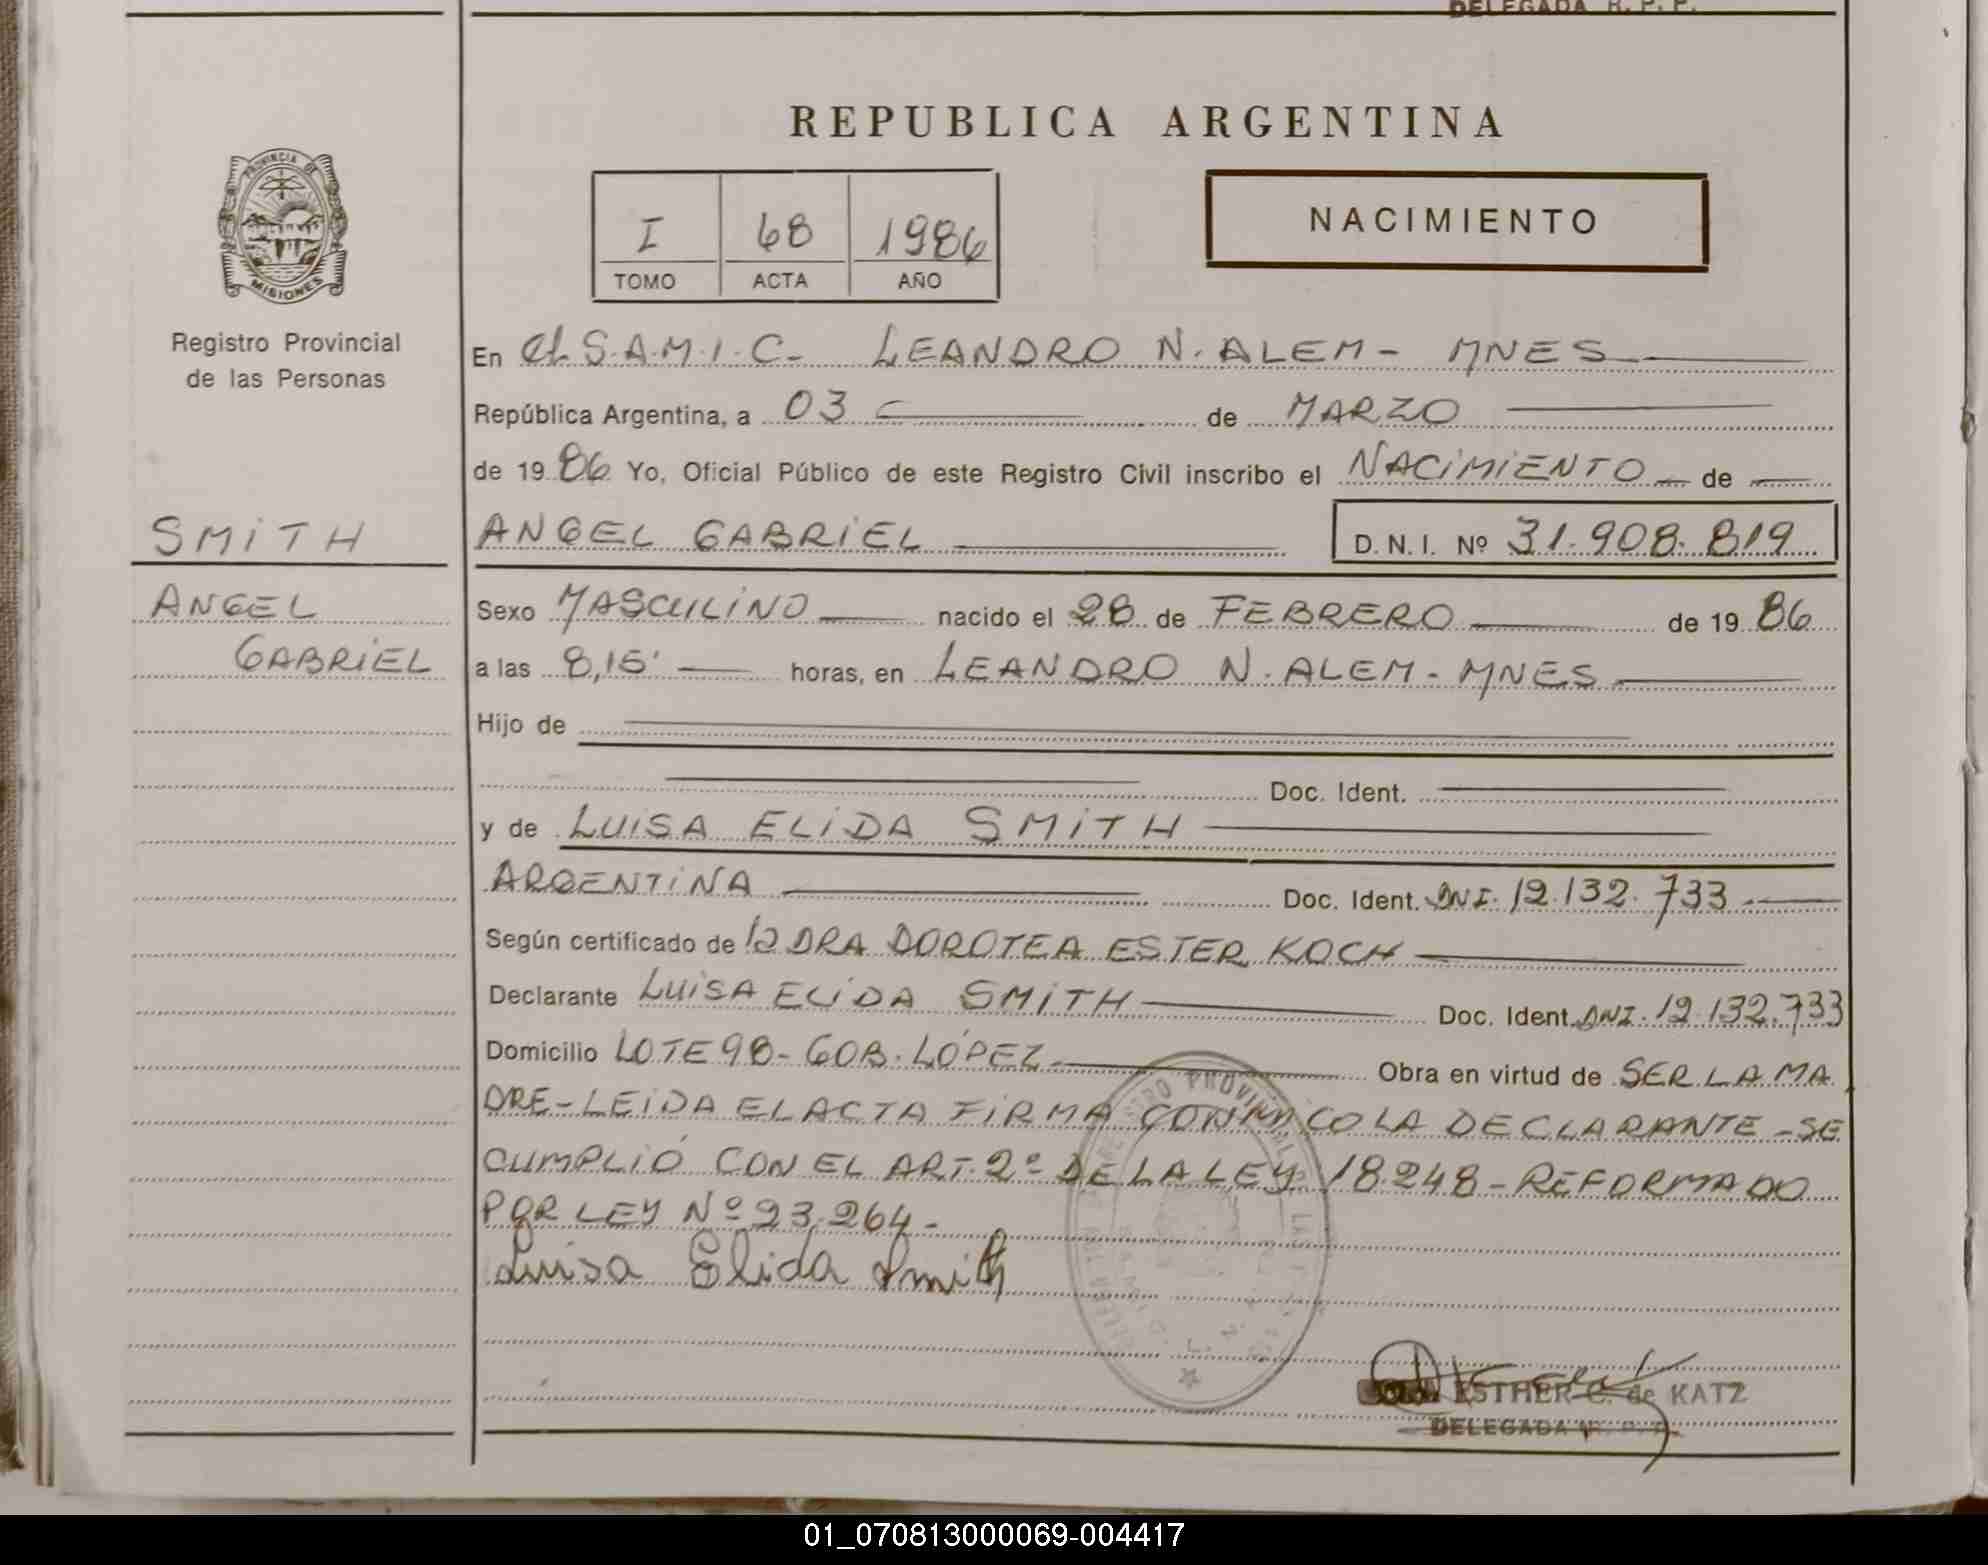 DELEGADA R. P. P.
REPUBLICA ARGENTINA
PROVINCIA DE
MISIONES
Registro Provincial
de las Personas
I 68 1986
TOMO ACTA AÑO
NACIMIENTO
En el S.A.M.I.C. LEANDRO N. ALEM - MNES
República Argentina, a 03 de MARZO
de 1986 Yo, Oficial Público de este Registro Civil inscribo el NACIMIENTO de
SMITH
ANGEL GABRIEL D. N. I. Nº 31.908.819
ANGEL
GABRIEL
Sexo MASCULINO nacido el 28 de FEBRERO de 1986
a las 8,15' horas, en LEANDRO N. ALEM - MNES
Hijo de
Doc. Ident.
y de LUISA ELIDA SMITH
ARGENTINA Doc. Ident. DNI. 12.132.733
Según certificado de la DRA DOROTEA ESTER KOCH
Declarante LUISA ELIDA SMITH Doc. Ident. DNI. 12.132.733
Domicilio LOTE 98 - GOB. LÓPEZ Obra en virtud de SER LA MA
DRE - LEIDA EL ACTA FIRMA CONMIGO LA DECLARANTE - SE
CUMPLIÓ CON EL ART. 2º DE LA LEY 18.248 - REFORMADO
POR LEY Nº 23.264 -
Luisa Elida Smith
ESTHER C. de KATZ
DELEGADA R. P. P.
01_070813000069-004417